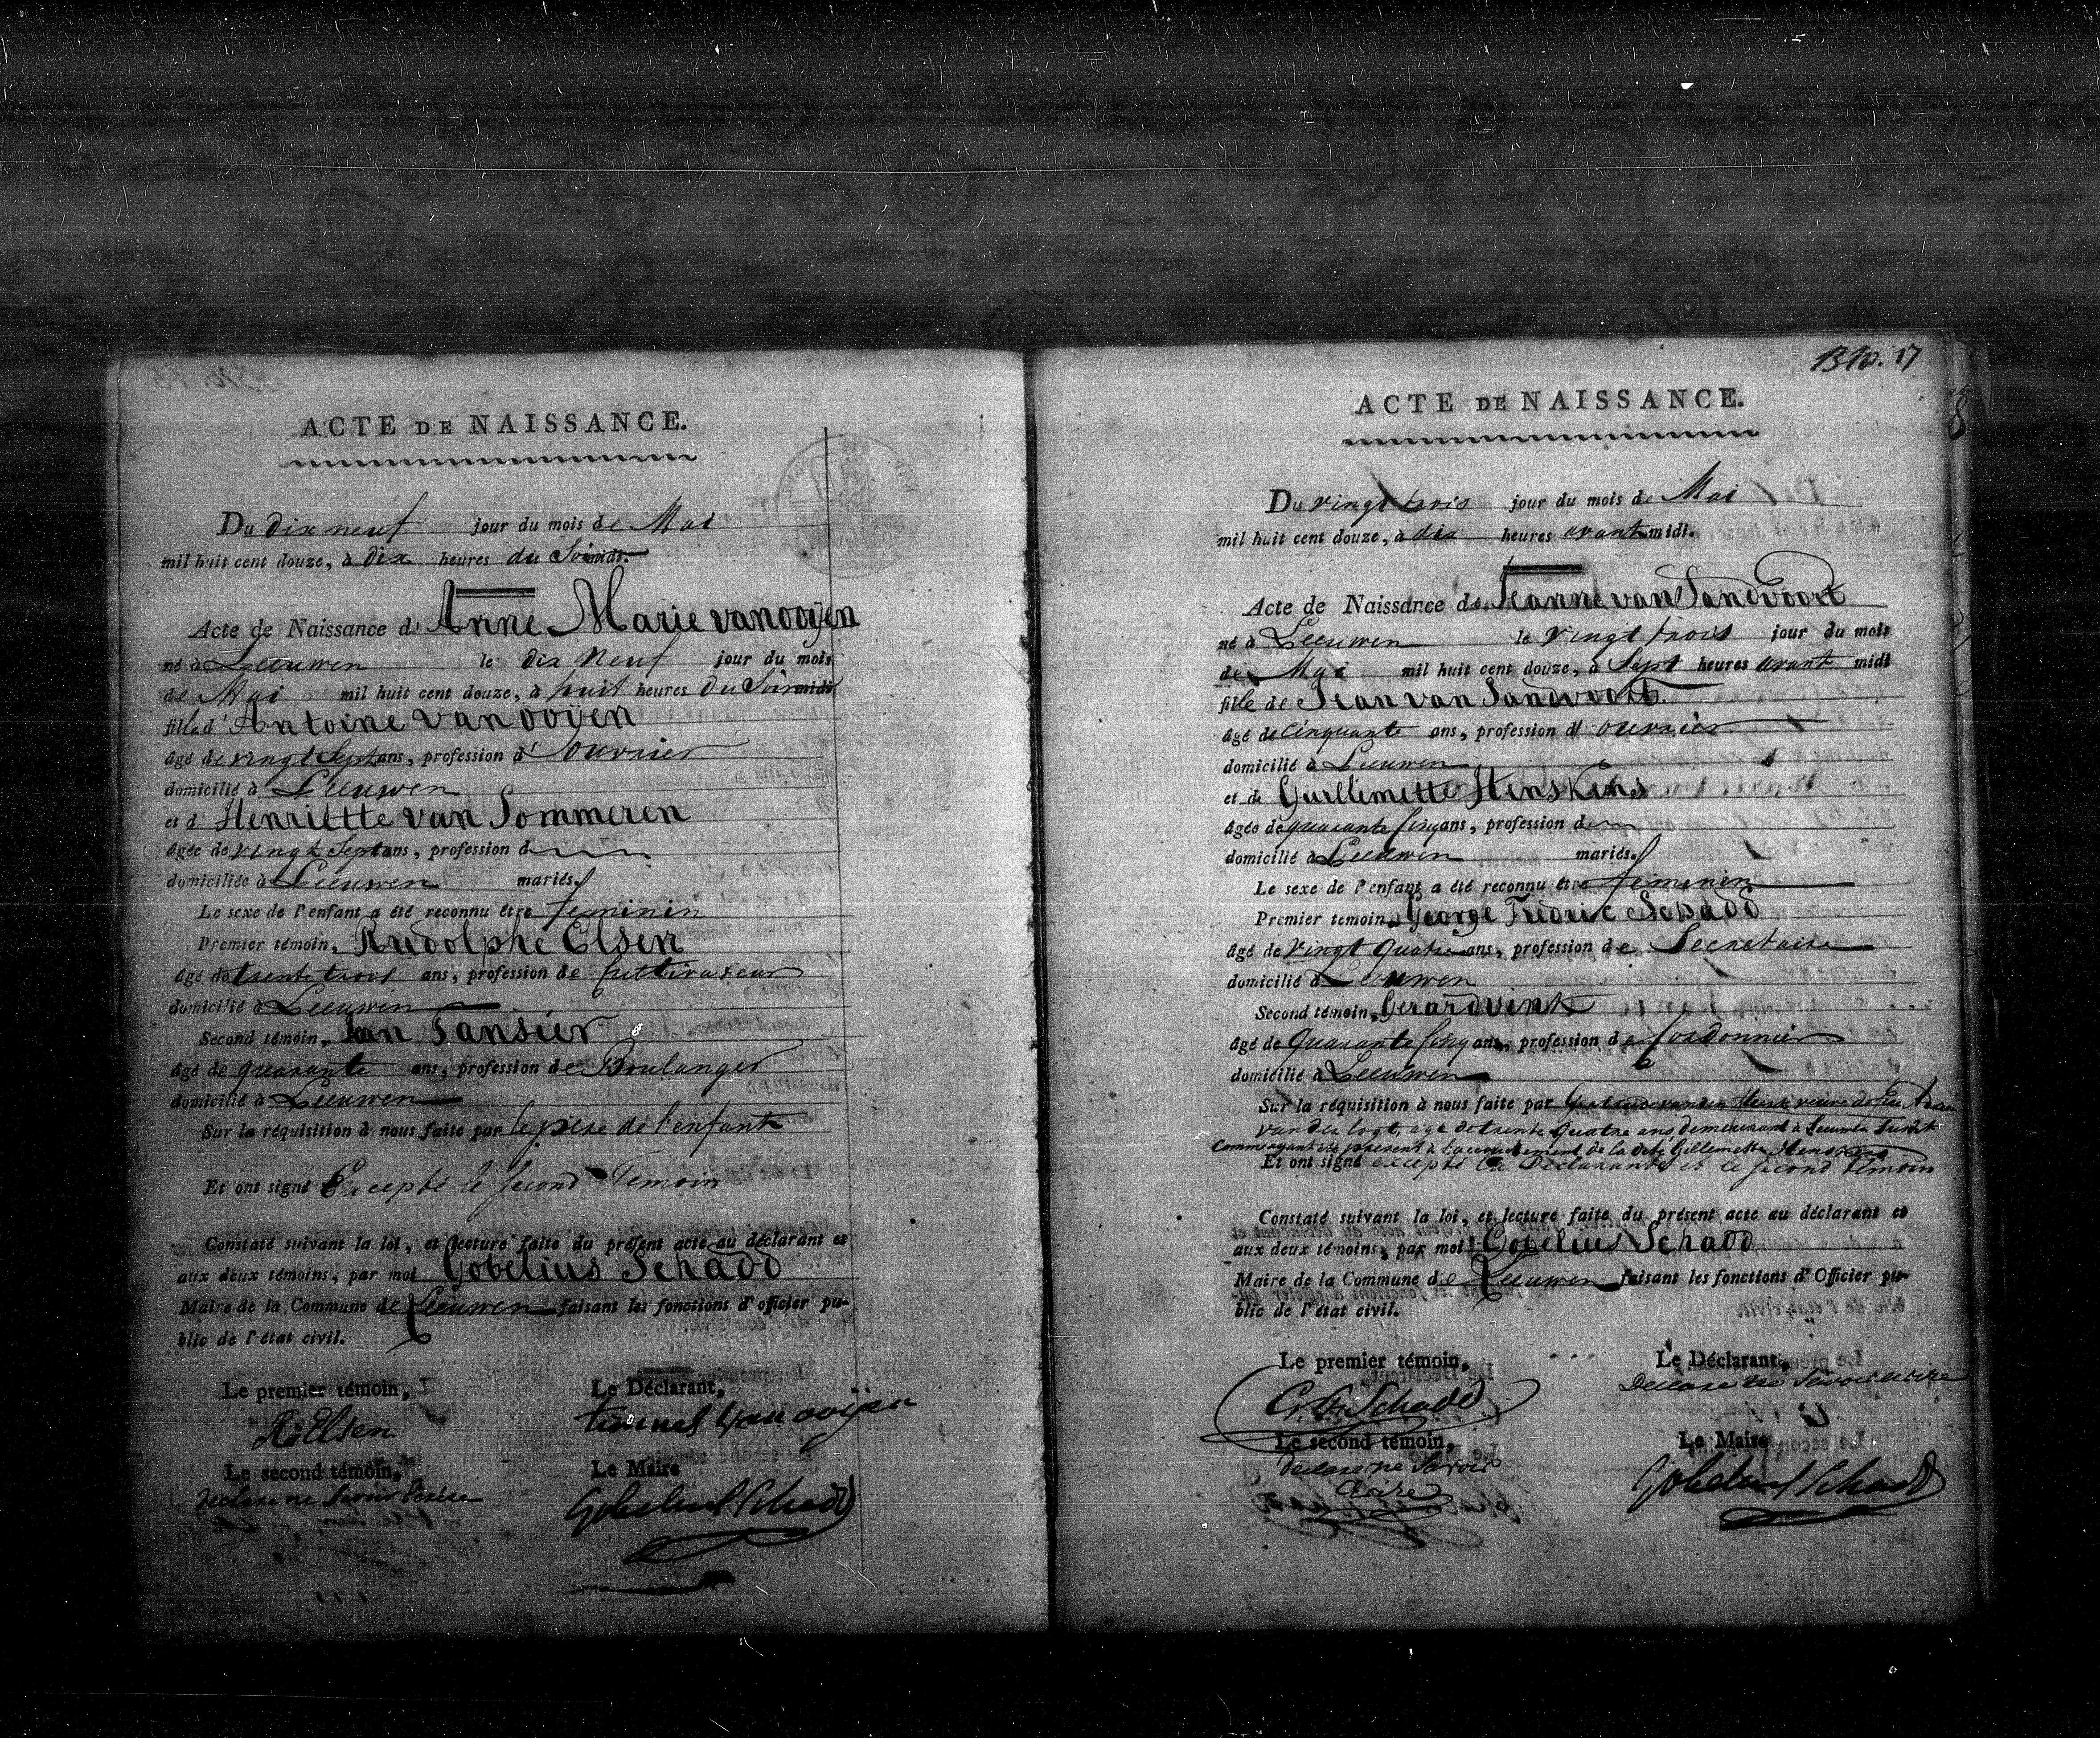 ACTE DE NAISSANCE.
Du dix neuf jour du mois de Mai
mil huit cent douze, à dix heures du Soir midi.
Acte de Naissance d' Anne Marie van ooijen
né à Leeuwen le dix Neuf jour du mois
de Mai mil huit cent douze, à huit heures du Soir midi
fille d' Antoine van ooijen
âgé de vingt Sept ans, profession d' ouvrier
domicilié à Leeuwen
et d' Henriette van Sommeren
âgée de vingt Sept ans, profession d
domiciliée à Leeuwen mariés.
Le sexe de l'enfant a été reconnu être feminin
Premier témoin, Rudolphe Elsen
âgé de trente trois ans, profession de Cultivateur
domicilié à Leeuwen
Second témoin, Jan Sansier
âgé de quarante ans, profession de Boulanger
domicilié à Leeuwen
Sur la réquisition à nous faite par le père de l'enfant
Et ont signé Excepté le second Temoin
Constaté suivant la loi, et lecture faite du présent acte au déclarant et
aux deux témoins, par moi Gobelius Schadd
Maire de la Commune de Leeuwen faisant les fonctions d'officier pu-
blic de l'état civil.
Le premier témoin, Le Déclarant,
R: Elsen van ooijen
Le second témoin, Le Maire
declare ne Savoir Ecrire Gobelius Schadd
BNo. 17
ACTE DE NAISSANCE.
Du vingt trois jour du mois de Mai
mil huit cent douze, à dix heures avant midi.
Acte de Naissance de Jeanne van Sandvoort
né à Leeuwen le vingt trois jour du mois
de Mai mil huit cent douze, à Sept heures avant midi
fille de Jean van Sandvoort
âgé de Cinquante ans, profession d' ouvrier
domicilié à Leeuwen
et de Guillemette Henskens
âgée de quarante Cinq ans, profession d
domicilié à Leeuwen mariés.
Le sexe de l'enfant a été reconnu être feminin
Premier temoin, George Fredric Schadd
âgé de vingt Quatre ans, profession de Secretaire
domicilié à Leeuwen
Second témoin, Gerard vink
âgé de Quarante Cinq ans, profession de Cordonnier
domicilié à Leeuwen
Sur la réquisition à nous faite par veuve de feu
van der Loot, age de trente Quatre ans demeurant à Leeuwen
present à l'accouchement de la dite Gillemette Henskens
Et ont signé excepté la Declarante et le second temoin
Constaté suivant la loi, et lecture faite du présent acte au déclarant et
aux deux témoins, par moi Gobelius Schadd
Maire de la Commune de Leeuwen faisant les fonctions d'Officier pu-
blic de l'état civil.
Le premier témoin, Le Déclarant,
G: F: Schadd Declare ne Savoir ecrire
Le second témoin, Le Maire
declare ne Savoir Gobelius Schadd
Ecrire